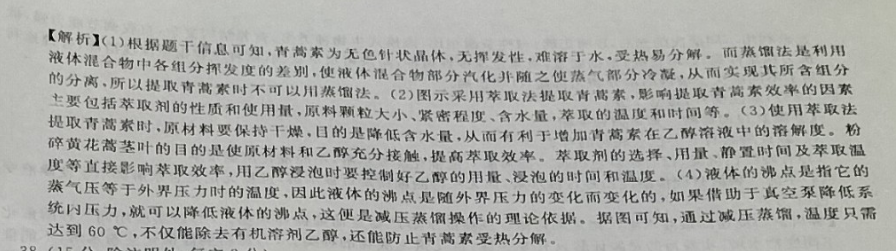 【解析】(1)根据题干信息可知,青蒿素为无色针状晶体,无挥发性,难溶于水,受热易分解。而蒸馏法是利用
液体混合物中各组分挥发度的差别,使液体混合物部分汽化并随之使蒸气部分冷凝,从而实现其所含组分
的分离,所以提取青蒿素时不可以用蒸馏法。(2)图示采用萃取法提取青蒿素,影响提取青蒿素效率的因素
主要包括萃取剂的性质和使用量,原料颗粒大小、紧密程度、含水量,萃取的温度和时间等。(3)使用萃取法
提取青蒿素时,原材料要保持干燥,目的是降低含水量,从而有利于增加青蒿素在乙醇溶液中的溶解度。粉
碎黄花蒿茎叶的目的是使原材料和乙醇充分接触,提高萃取效率。萃取剂的选择、用量、静置时间及萃取温
度等直接影响萃取效率,用乙醇浸泡时要控制好乙醇的用量、浸泡的时间和温度。(4)液体的沸点是指它的
蒸气压等于外界压力时的温度,因此液体的沸点是随外界压力的变化而变化的,如果借助于真空泵降低系
统内压力,就可以降低液体的沸点,这便是减压蒸馏操作的理论依据。据图可知,通过减压蒸馏,温度只需
达到 60 ℃,不仅能除去有机溶剂乙醇,还能防止青蒿素受热分解。